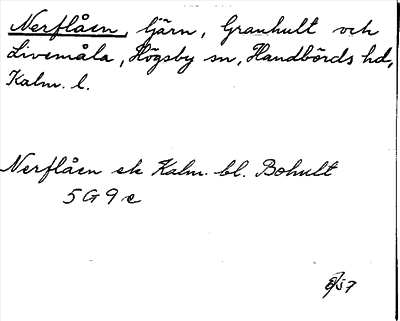 Nerflåen, tjärn, Granhult och
Livemåla, Högsby sn, Handbörds hd,
Kalm. l.
Nerflåen ek Kalm. bl. Bohult
5G9e